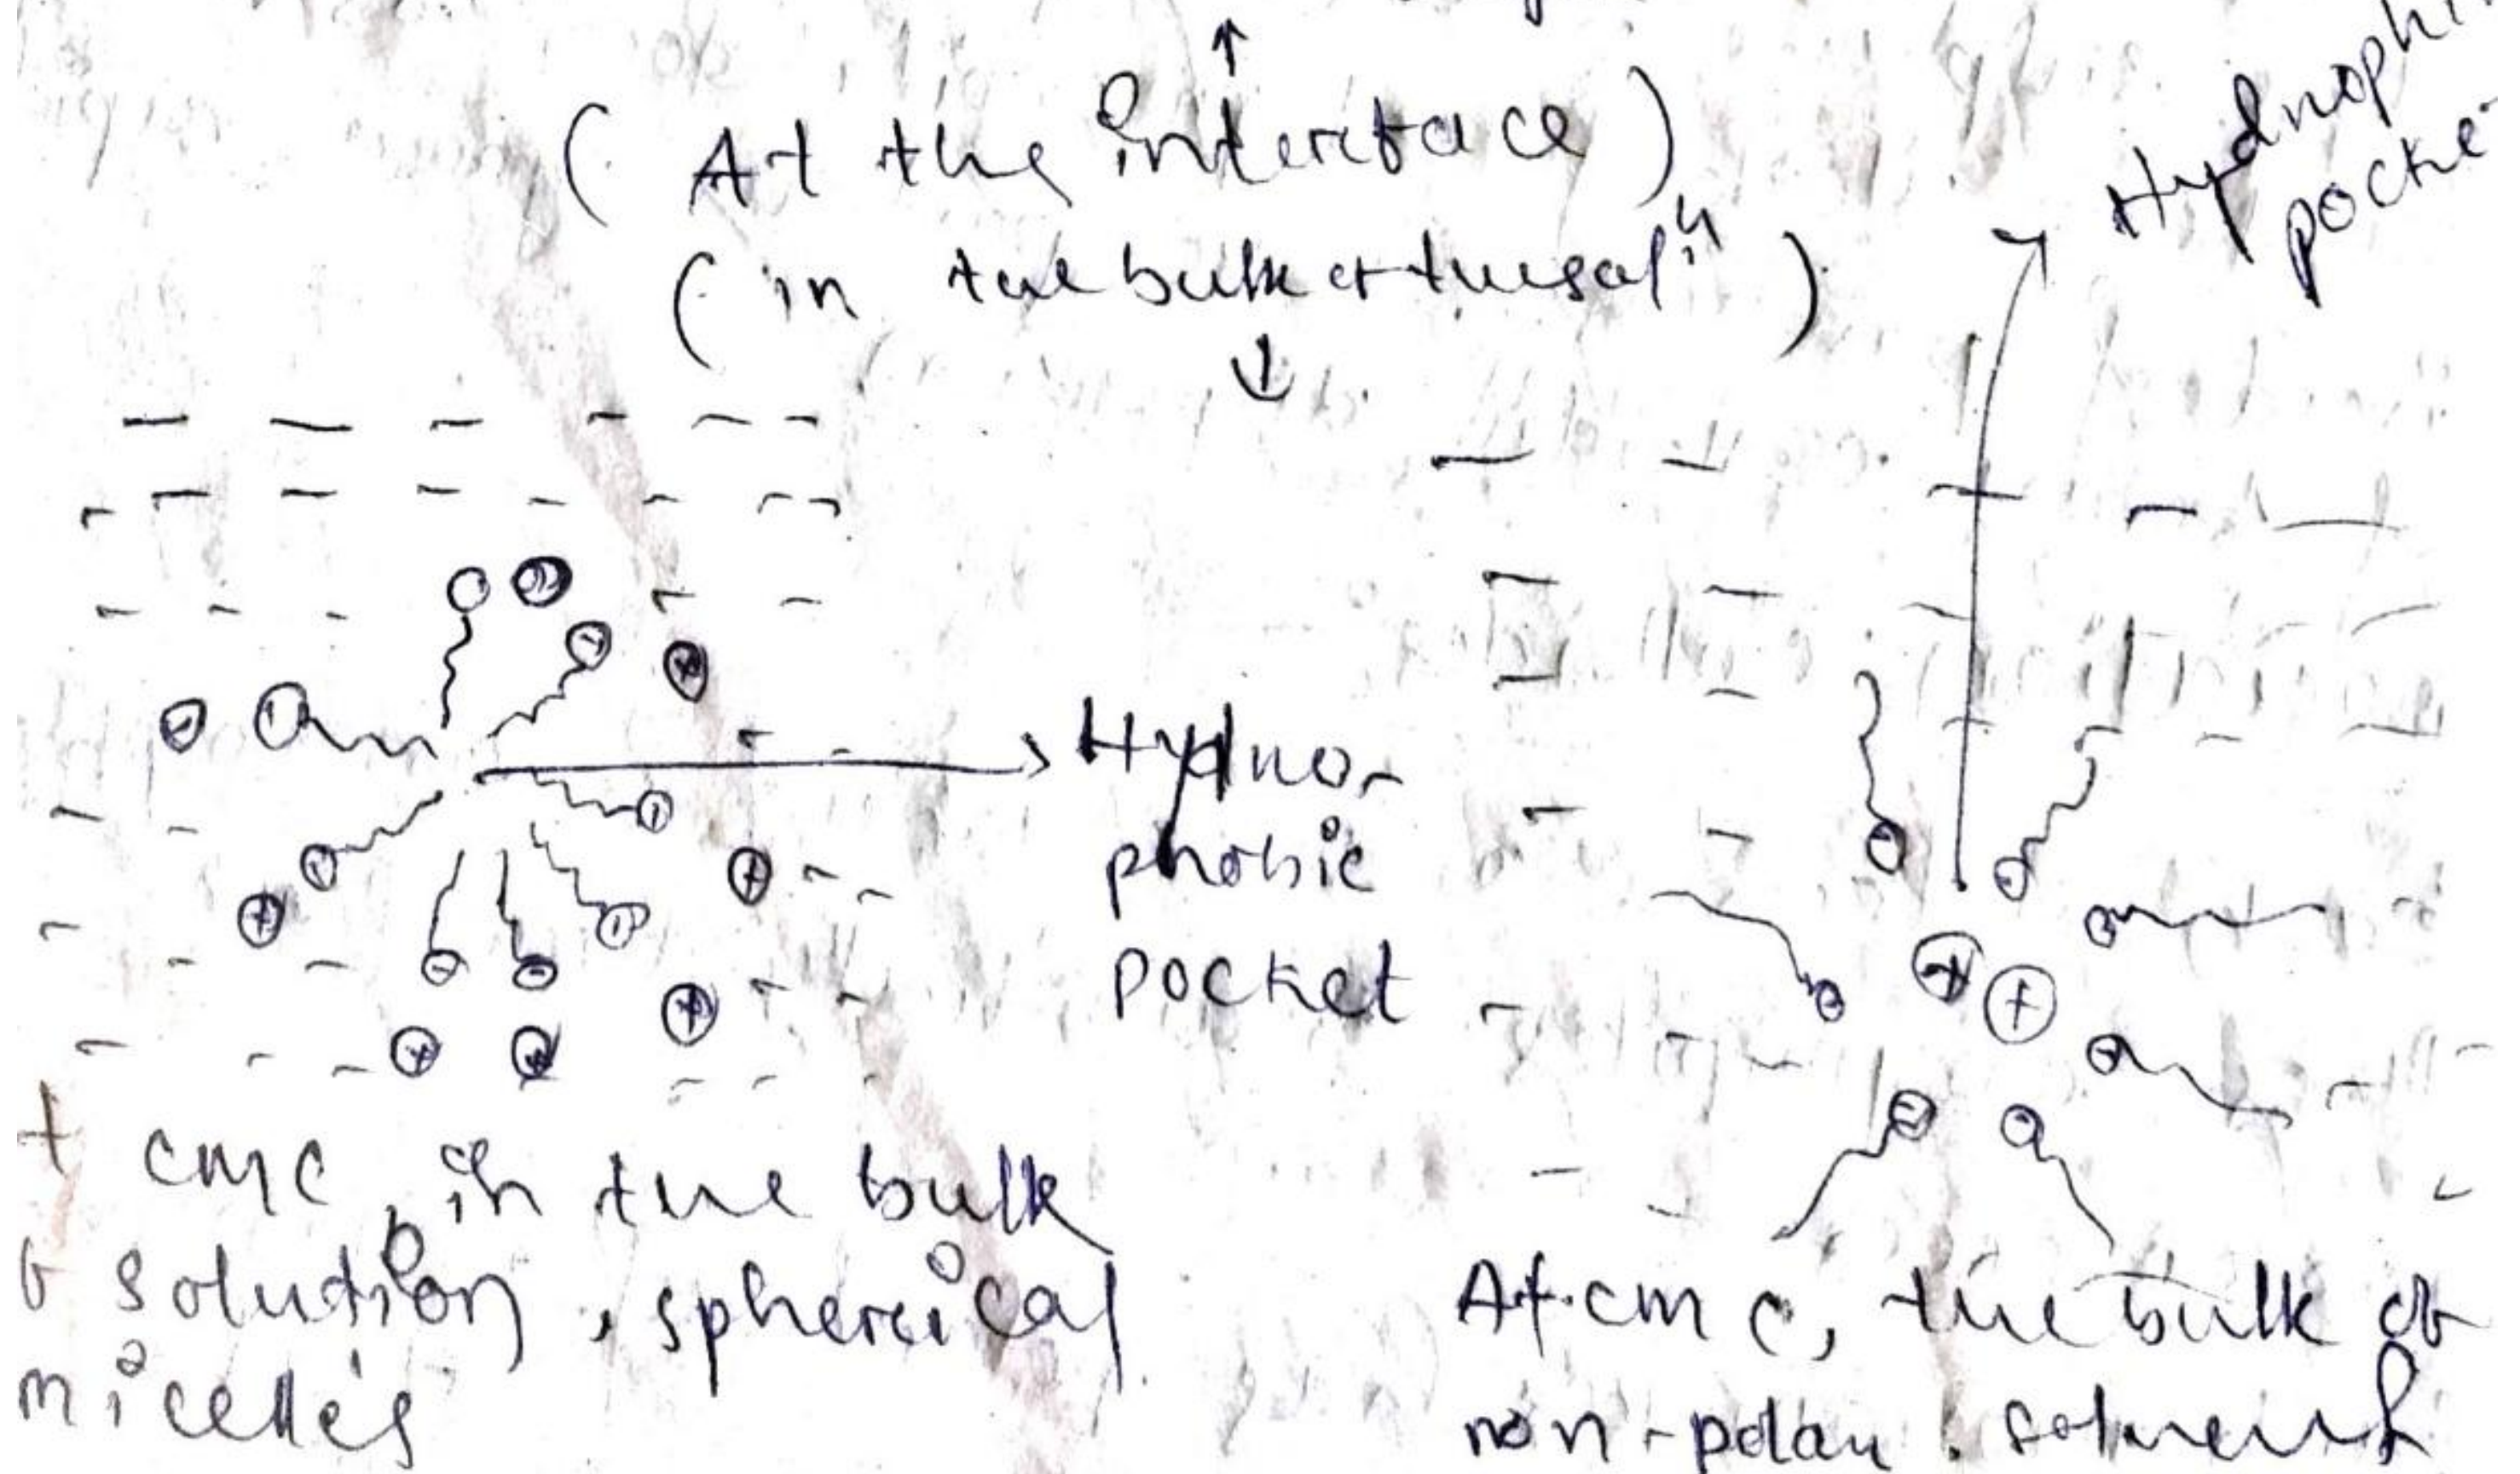 ( At the interface )
( in the bulk of the sol.n )
Hydrophi
pocke
Hydro-
phobic
pocket
t cmc, in the bulk
f solution, spherical
micelles
At cmc, the bulk of
non-polar solvent